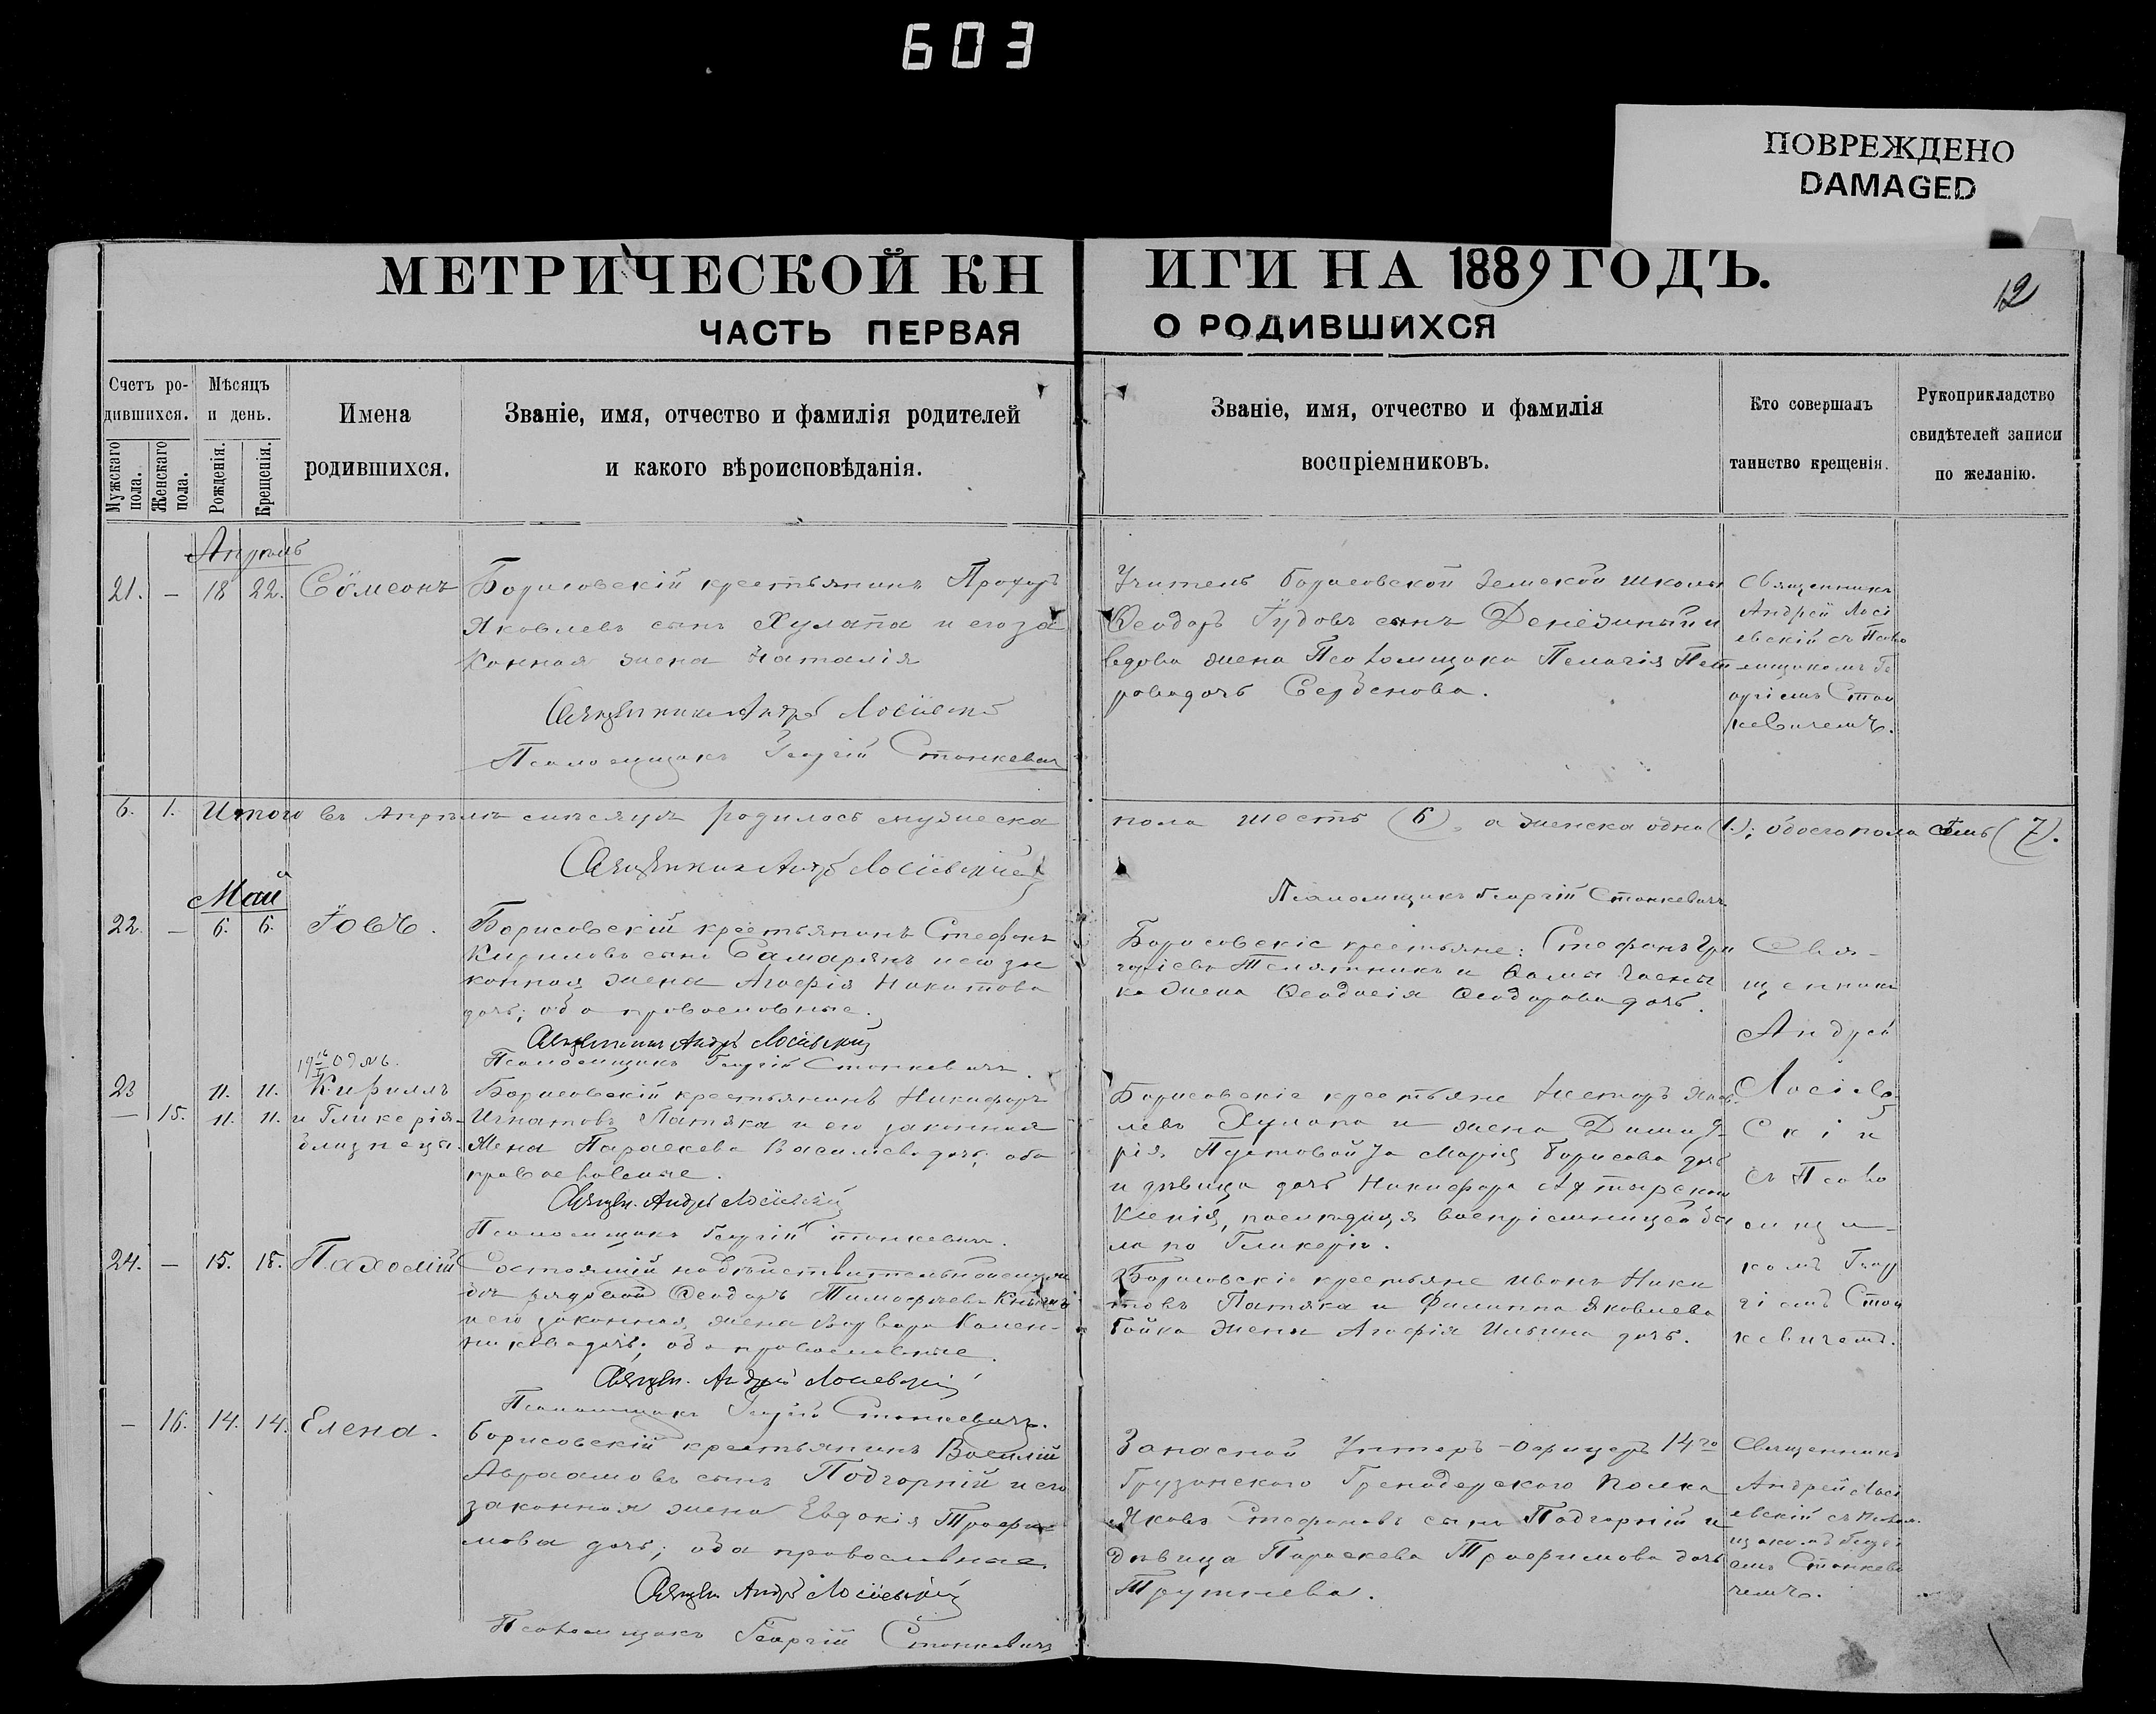 603
ПОВРЕЖДЕНО
DAMAGED
МЕТРИЧЕСКОЙ КНИГИ НА 1889 ГОДЪ.
12
ЧАСТЬ ПЕРВАЯ О РОДИВШИХСЯ
Счетъ родившихся.
Мужскаго пола.
Женскаго пола.
Мѣсяцъ и день.
Рожденія.
Крещенія.
Имена родившихся.
Званіе, имя, отчество и фамилія родителей
и какого вѣроисповѣданія.
Званіе, имя, отчество и фамилія
воспріемниковъ.
Кто совершалъ
таинство крещенія.
Рукоприкладство
свидѣтелей записи
по желанію.
Апрѣль
21. – 18 22. Сѵмеонъ
Борисовскій крестьянинъ Прохоръ
Яковлевъ сынъ Хулапа и его за
конная жена Наталія
Священникъ Андрей Лосіевскій
Псаломщикъ Георгій Станкевич
Учитель Борисовской Земской школы
Ѳеодоръ сынъ и
вдова жена Псаломщика Пелагія Пет
рова дочь
Священникъ
Андрей Лосі
евскій съ Псало
мщикомъ Ге
оргіемъ Стан
кевичемъ.
6. 1. Итого въ Апрѣлѣ мѣсяцѣ родилось мужеска пола шесть (6), а женска одна (1.); обоего пола семь (7).
Священникъ Андрей Лосіевскій
Псаломщикъ Георгій Станкевичъ
Май
22. – 6. 6. Іовъ.
Борисовскій крестьянинъ Стефанъ
Кириловъ сынъ Самарянъ и его за
конная жена Агафія Никитова
дочь; оба православные.
Священникъ Андрей Лосіевскій
Псаломщикъ Георгій Станкевичъ.
Борисовскіе крестьяне: Стефанъ Гри
горіевъ Телятникъ и Ѳомы
жена Ѳеодосія Ѳеодорова дочь.
Свя-
щенникъ
Андрей
Лосіев
скій
съ Псало
мщи-
комъ Геор
гіемъ Стан
кевичемъ.
23 11. 11. Кириллъ
– 15. 11. 11. и Гликерія
близнецы.
Борисовскій крестьянинъ Никифоръ
Игнатовъ Патяка и его законная
жена Параскева Василіева дочь; оба
православные.
Священ. Андрей Лосіевскій
Псаломщикъ Георгій Станкевичъ.
Борисовскіе крестьяне Несторъ Яков
левъ Хулапа и жена Димит
рія Марія Борисова дочь
и дѣвица дочь Никифора
Ксенія, послѣдняя воспріемницей бы
ла по Гликеріи.
24. – 15. 18. Пахомій
Состоящій на дѣйствительной
рядовой Ѳеодоръ Тимофеевъ
и его законная жена Варвара
дочь; оба православные.
Священ. Андрей Лосіевскій
Псаломщикъ Георгій Станкевичъ.
Борисовскіе крестьяне Иванъ Ники
товъ Патяка и Филиппа Яковлева
Бойка жена Агафія Ильина дочь.
– 16. 14. 14. Елена.
Борисовскій крестьянинъ Василій
Авраамовъ сынъ Подгорній и его
законная жена Евдокія Трофи
мова дочь; оба православные.
Священ. Андрей Лосіевскій
Псаломщикъ Георгій Станкевичъ
Запасной Унтеръ-Офицеръ 14го
Грузинского Гренадерского полка
Яковъ Стефановъ сынъ Подгорній и
дѣвица Параскева Трофимова дочь
Священникъ
Андрей Лосі
евскій съ Псалом
щикомъ Георгі
емъ Станкеви
чемъ.